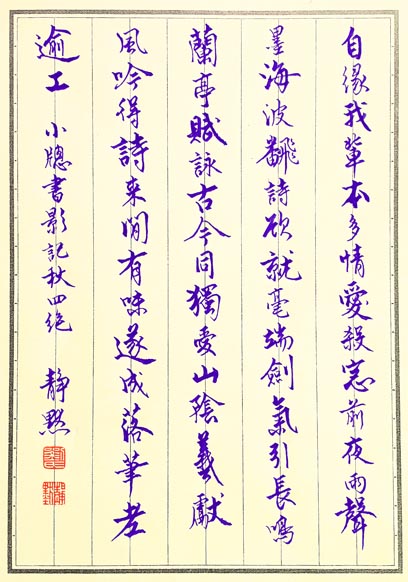 自緣我輩本多情愛殺窓前夜雨聲
墨海波飜詩欲就毫端劍氣引長鳴
蘭亭賦詠古今同獨愛山陰羲獻
風吟得詩来閒有味遂成落筆老
逾工 小牕書影記秋四絕 静默